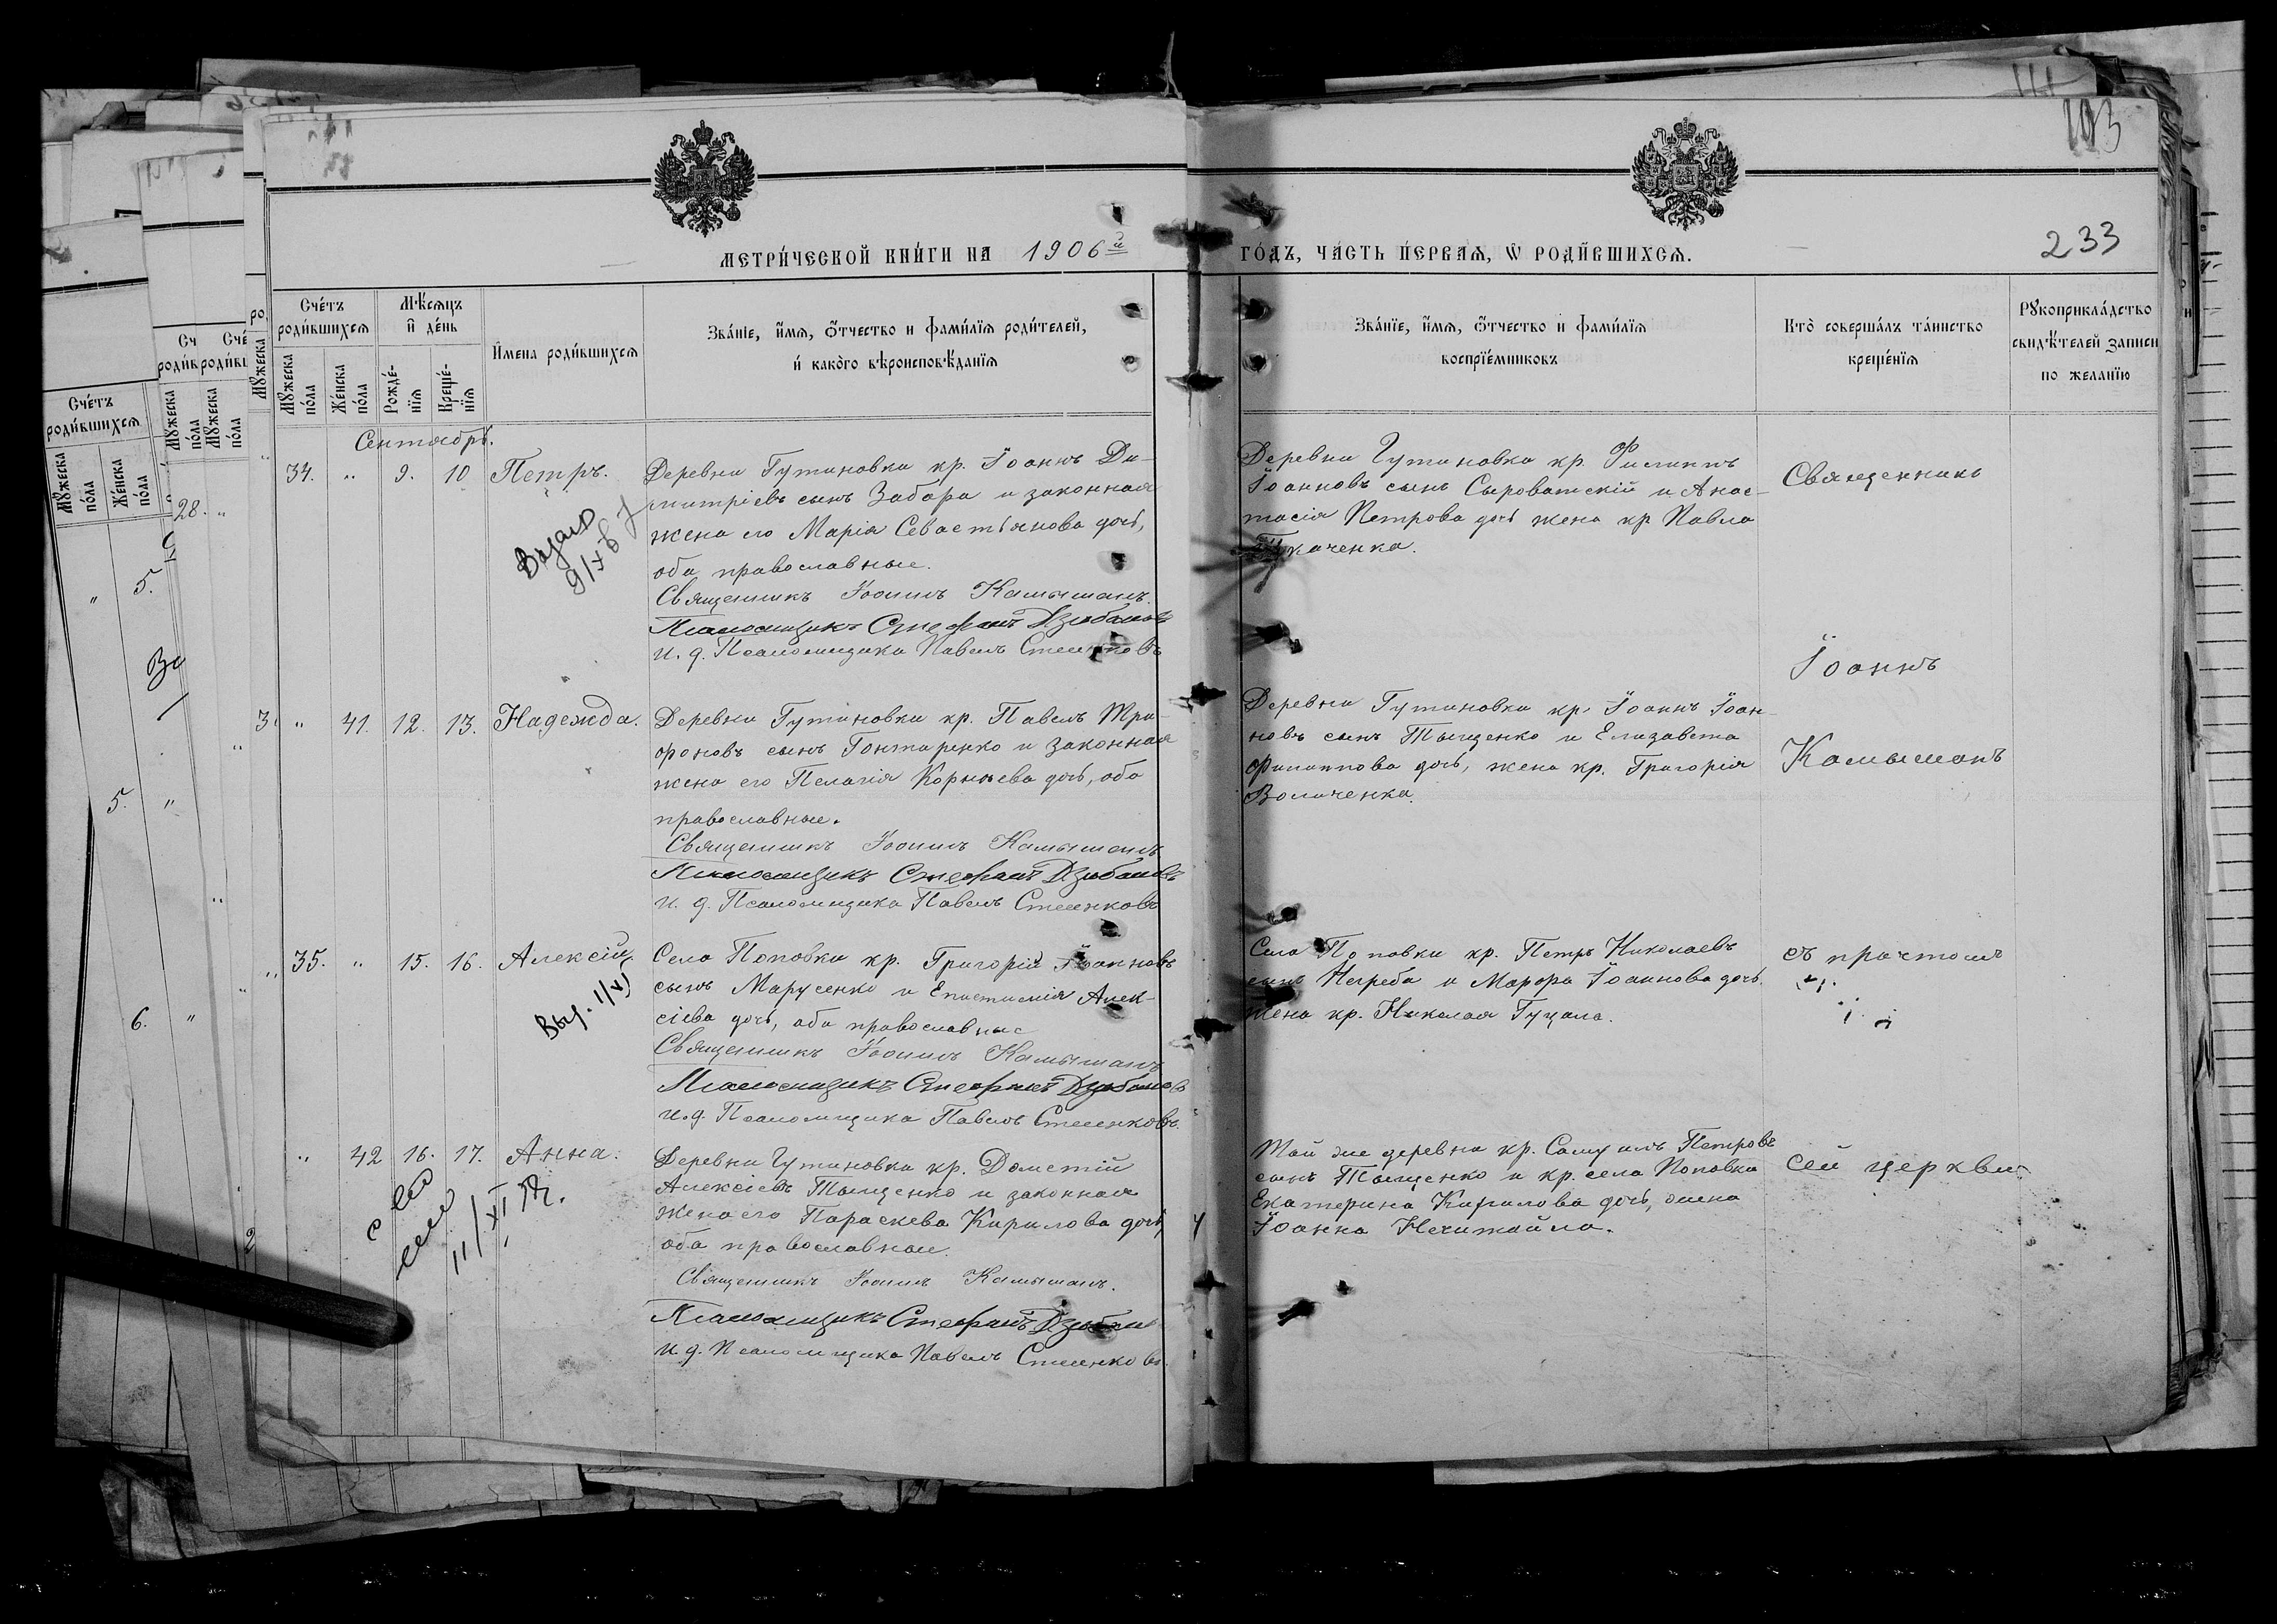 МЕТРИ́ЧЕСКОЙ КНИ́ГИ НА 1906й
ГО́ДЪ, ЧА́СТЬ ПЕ́РВАѦ, Ѡ РОДИ́ВШИХСѦ.
233
Сче́тъ роди́вшихсѧ
Мꙋ́жеска по́ла
Же́нска по́ла
Мѣ́сѧцъ и҆ де́нь
Рожде́-нїѧ
Креще́-нїѧ
И҆мена роди́вшихсѧ
Зва́нїе, и҆́мѧ, ѻ҆́тчество и фами́лїѧ роди́телей,
и҆ како́го вѣроисповѣ́данїѧ
Зва́нїе, и҆́мѧ, ѻ҆́тчество и҆ фами́лїѧ
воспрїе́мниковъ
Кто̀ соверша́лъ та́инство
креще́нїѧ
Рꙋкоприкла́дство
свидѣ́телей записи
по жела́нїю
Сентябрь.
34. " 9. 10 Петръ.
Деревни Гутиновки кр. Іоаннъ Ди-
митріевъ сынъ Забара и законная
жена его Марія Севастьянова дочь,
оба православные.
Священникъ Іоаннъ Камышанъ.
Псаломщикъ Стефанъ Дзюбановъ
И. д. Псаломщика Павелъ
Деревни Гутиновки кр. Филиппъ
Іоанновъ сынъ Сыроватскій и Анас-
тасія Петрова дочь жена кр Павла
Ткаченка.
Священникъ
" 41. 12. 13. Надежда.
Деревни Гутиновки кр. Павелъ Три-
фоновъ сынъ Гонтаренко и законная
жена его Пелагія Корнѣева дочь, оба
православные.
Священникъ Іоаннъ Камышанъ
Псаломщикъ Стефанъ Дзюбановъ
И. д. Псаломщика Павелъ
Деревни Гутиновки кр. Іоаннъ Іоан-
новъ сынъ Тыщенко и Елизавета
Филиппова дочь, жена кр. Григорія
Воличенка.
Іоаннъ
Камышанъ
35. " 15. 16. Алексій.
Выд.
Села Поповки кр. Григорій Іоанновъ
сынъ Марусенко и Епистимія Алек-
сіева дочь, оба православные
Священникъ Іоаннъ Камышанъ
Псаломщикъ Стефанъ Дзюбановъ
И. д. Псаломщика Павелъ
Села Поповки кр. Петръ Николаевъ
сынъ Негреба и Марфа Іоаннова дочь
жена кр. Николая Гуцала.
съ причтомъ
" 42 16. 17. Анна.
Деревни Гутиновки кр. Дометій
Алексіевъ Тыщенко и законная
жена его Параскева Кирилова дочь,
оба православные.
Священникъ Іоаннъ Камышанъ.
Псаломщикъ Стефанъ Дзюбан
И. д. Псаломщика Павелъ
Той же деревни кр. Самуилъ Петровъ
сынъ Тыщенко и кр. села Поповки
Екатерина Кирилова дочь, жена
Іоанна Нечитайла.
сей церкви.